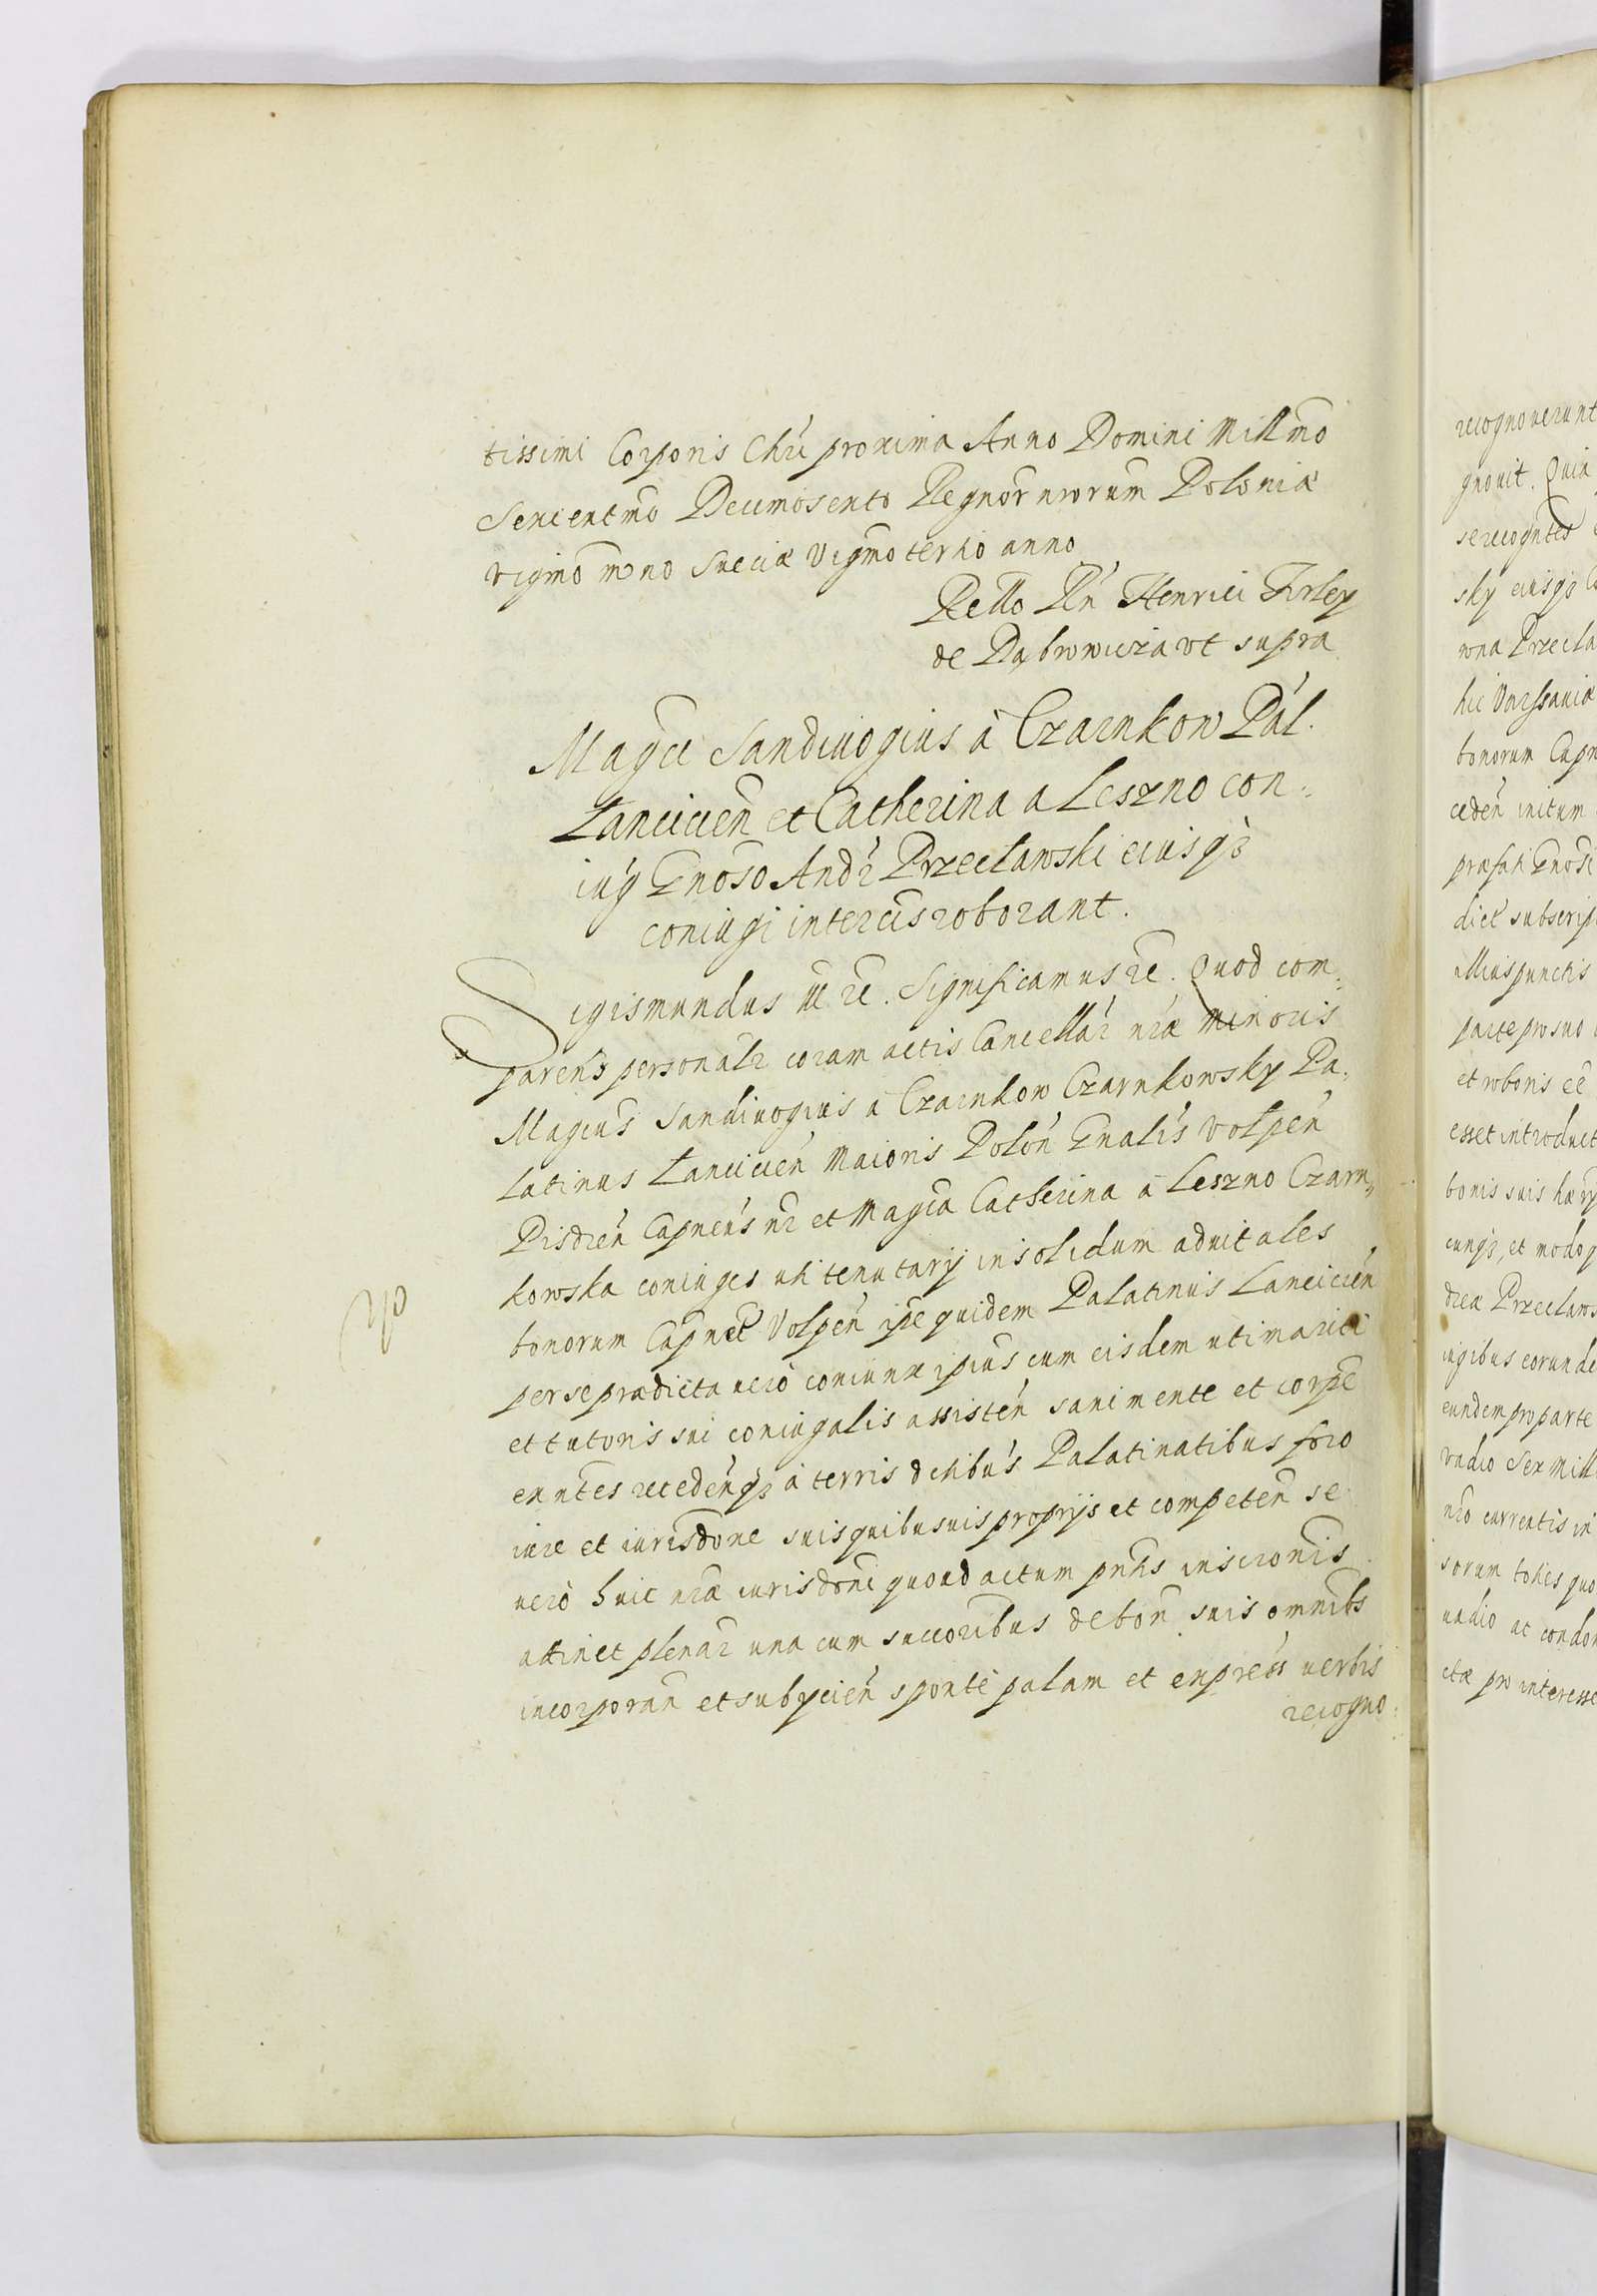 tissimi Corporis Chri proxima Anno Domini Millmo
Sexcentmo Decimosexto Regnor nrorum Poloniæ
vigmo nono Sueciæ Vigmo tertio anno
Rello Rn Henrici Firley
de Dąbrowicza vt supra
Magci Sandiuogius à Czarnkow Pal.
Lancicien et Catherina a Leszno con
iug Gnoso Andr Przecławski eiusq3
coniugi intercis roborant.
Sigismundus III rc. Significamus rc. Quod com
parens personalr coram actis Cancellar nræ Minoris
Magcus Sandiuogius à Czarnkow Czarnkowsky Pa
latinus Lancicien Maioris Polon Gnalis Volpen
Pisdren Capneus nr et Magca Catherina à Leszno Czarn
kowska coniuges uti tenutarij in solidum aduitales
bonorum Capnet Volpen ipe quidem Palatinus Lancicien
per se prædicta uerò coniunx ipius cum eisdem uti mariti
et tutoris sui coniugalis assisten sani mente et corpe
exntes recedenq3 à terris dchibus Palatinatibus foro
iure et iurisdone suis quibusuis proprijs et competen se
uerò huic nræ iurisdoni quoad actum pntis inscronis
attinet plenar una cum succoribus de bon suis omnibs
incorporan et subijcien sponte palam et express uerbis
recogno
recognouerunt
gnouit. Quia
se recogntes
sky eiusq3
wna Przecła
hic Varsauiæ
bonorum Capn
ceden initum
præfati Gnosi
dict subscrip
illius punctis
parte pro suo
et roboris ee
esset introduct
bonis suis hæry
cunq3, et modo q
dreæ Przecław
iugibus eorunde
eundem pro parte
vadio Sex Mill
nro currentis in
sorum toties quo
uadio ac condon
ctæ pro interesse